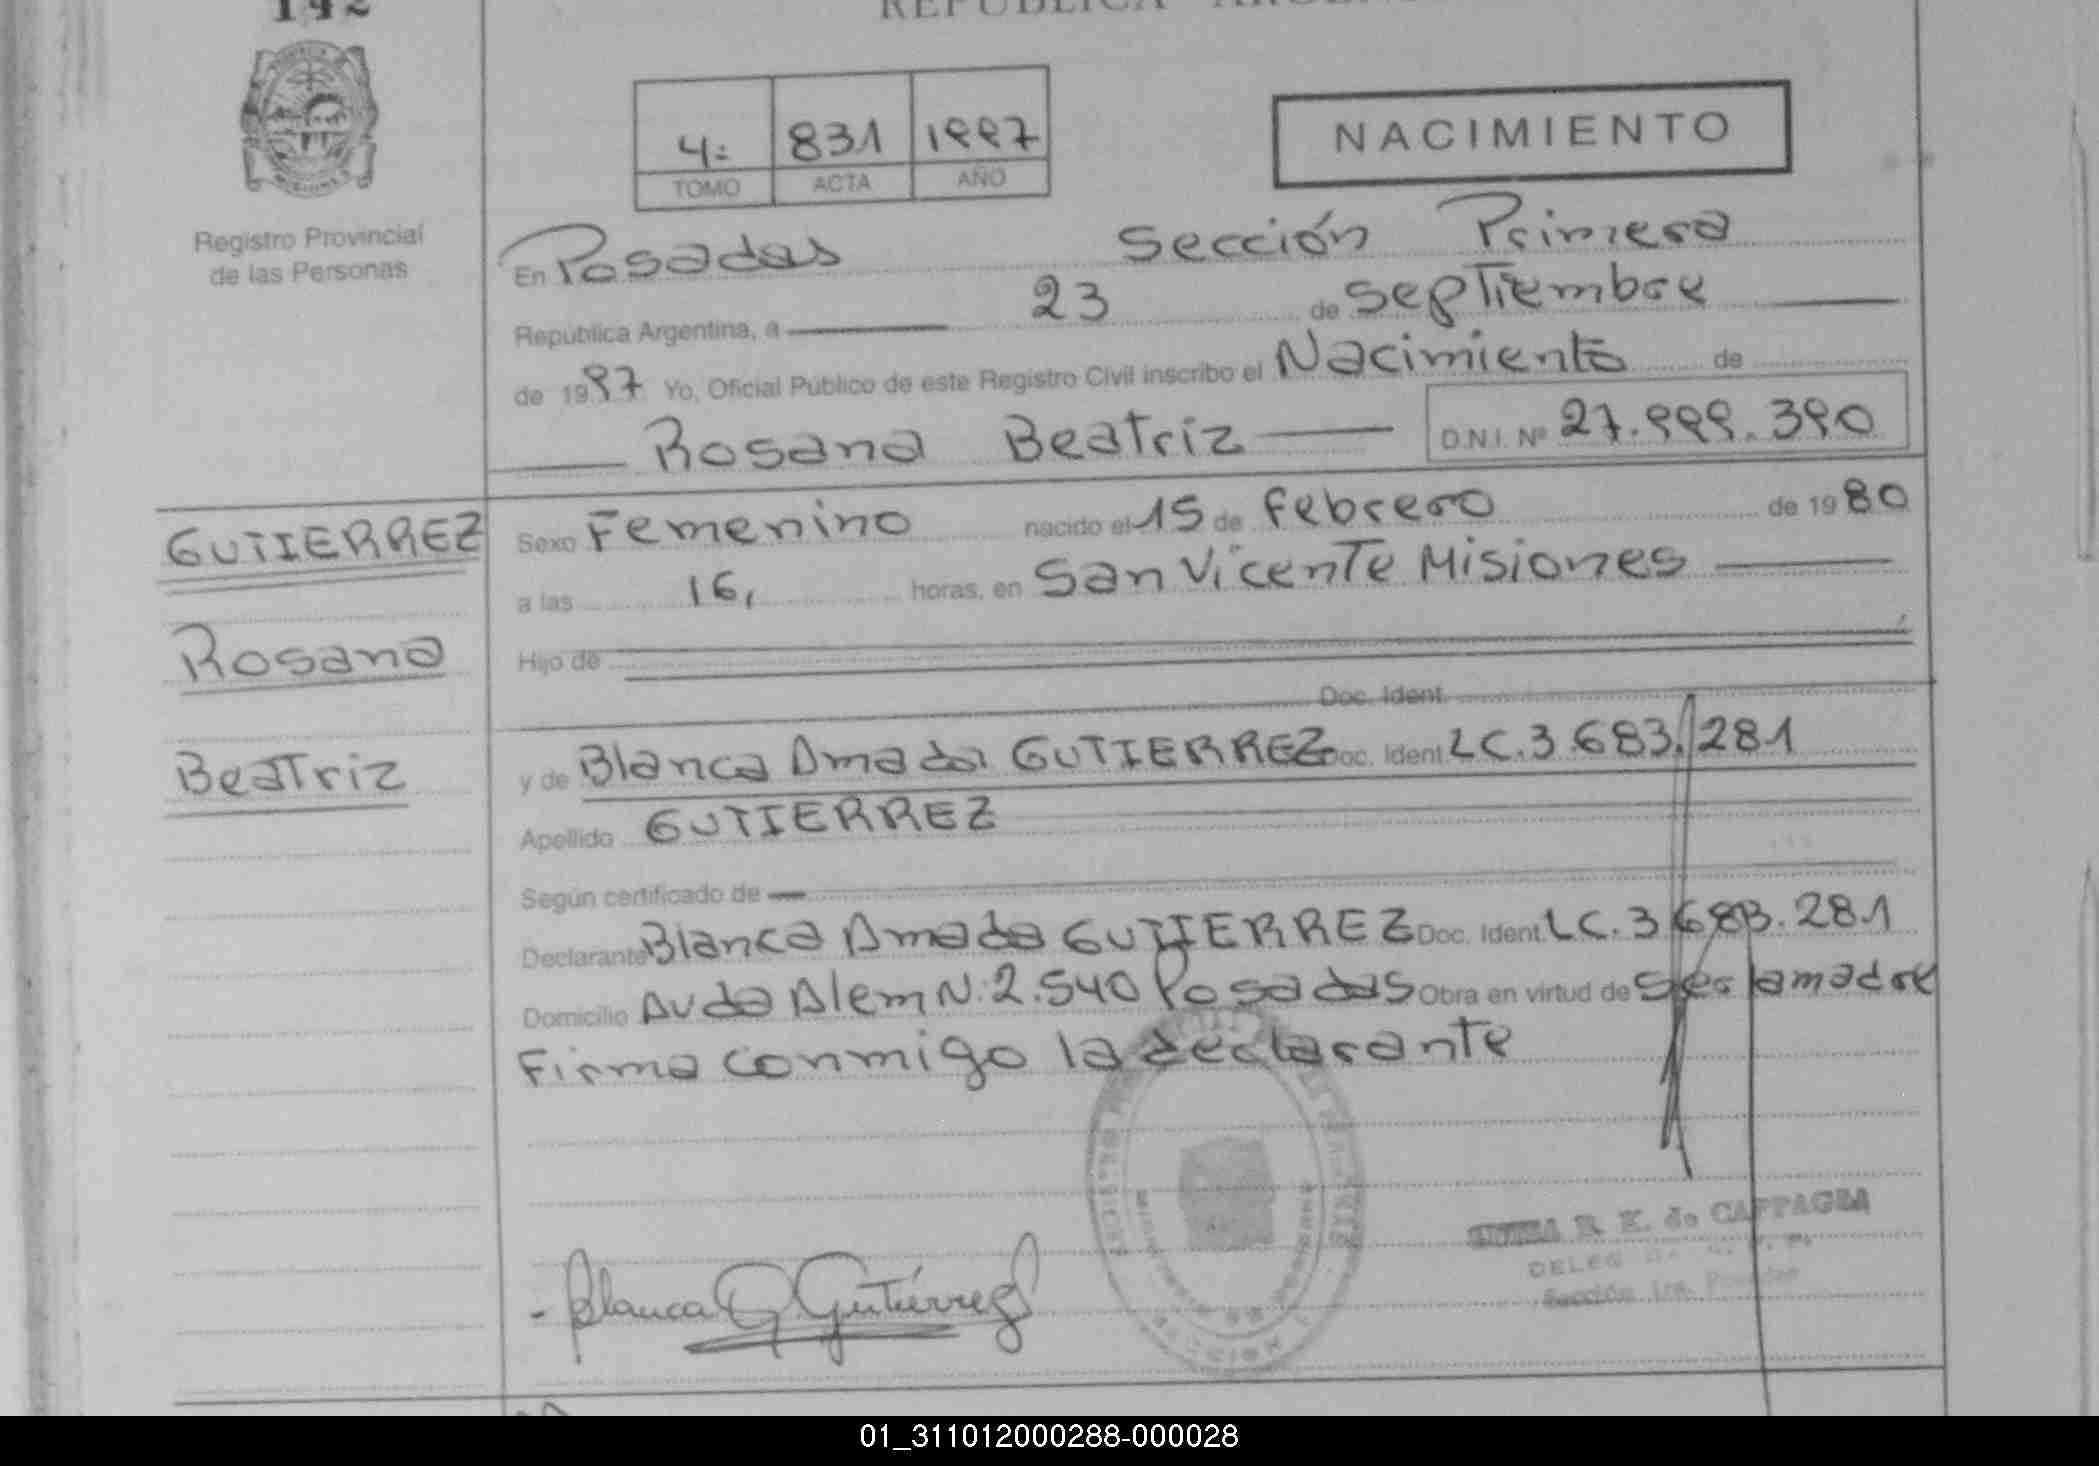 142
REPUBLICA ARGEN
4: 831 1997
TOMO ACTA AÑO
NACIMIENTO
Registro Provincial
de las Personas
En Posadas Sección Primera
República Argentina, a 23 de Septiembre
de 1997 Yo, Oficial Público de este Registro Civil inscribo el Nacimiento de
Rosana Beatriz D.N.I. Nº 27.999.390
GUTIERREZ
Rosana
Beatriz
Sexo Femenino nacido el 15 de Febrero de 1980
a las 16, horas, en San Vicente Misiones
Hijo de
Doc. Ident.
y de Blanca Amada GUTIERREZ Doc. Ident. LC.3.683.281
Apellido GUTIERREZ
Según certificado de
Declarante Blanca Amada GUTIERREZ Doc. Ident. LC.3.683.281
Domicilio Avda Alem N:2.540 Posadas Obra en virtud de ser la madre
Firma conmigo la declarante
Blanca G Gutiérrez
R. E. de CAPPAGLI
DELEG
Sección 1ra. Posadas
01_311012000288-000028